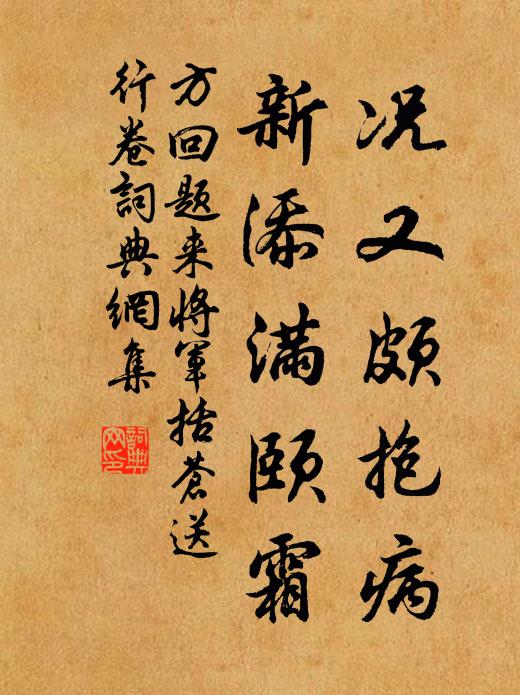 况又颇抱病
新添满颐霜
方回题来将军括苍送
行卷詞典網集
詞典
网印